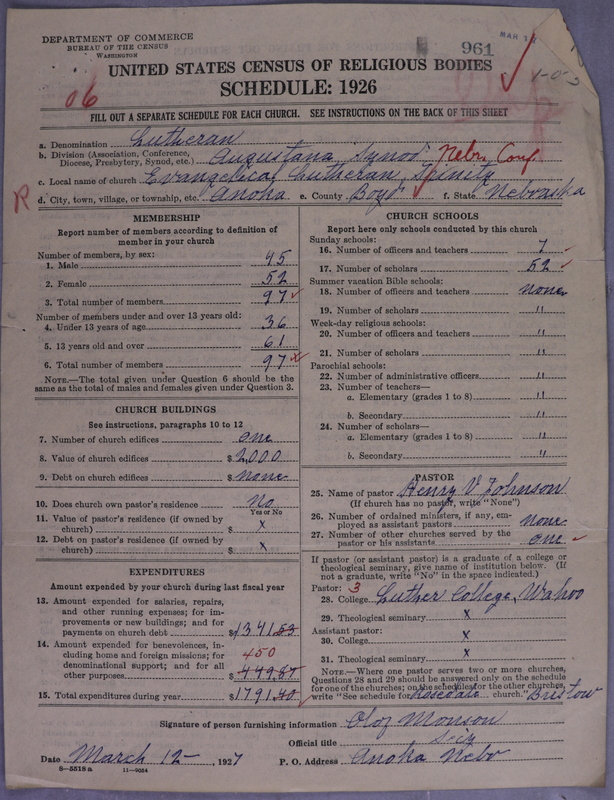 DEPARTMENT OF COMMERCE
BUREAU OF THE CENSUS
WASHINGTON
961
MAR
UNITED STATES CENSUS OF RELIGIOUS BODIES
SCHEDULE: 1926
06
FILL OUT A SEPARATE SCHEDULE FOR EACH CHURCH. SEE INSTRUCTIONS ON THE BACK OF THIS SHEET
a. Denomination Lutheran
b. Division (Association, Conference, Diocese, Presbytery, Synod, etc.) Augustana Synod Nebr. Conf
c. Local name of church Evangelical Lutheran Trinity
R
d. City, town, village, or township, etc. Anoka e. County Boyd f. State Nebraska
MEMBERSHIP
Report number of members according to definition of
member in your church
Number of members, by sex:
1. Male 45
2. Female 52
3. Total number of members 97
Number of members under and over 13 years old:
4. Under 13 years of age 36
5. 13 years old and over 61
6. Total number of members 97
NOTE.—The total given under Question 6 should be
same as the total of males and females given under Question 3.
CHURCH BUILDINGS
See instructions, paragraphs 10 to 12
7. Number of church edifices one
8. Value of church edifices $2,000
9. Debt on church edifices $ None
10. Does church own pastor's residence? No
Yes or No
11. Value of pastor's residence (if owned by
church) $ x
12. Debt on pastor's residence (if owned by
church) $ x
EXPENDITURES
Amount expended by your church during last fiscal year
13. Amount expended for salaries, repairs,
and other running expenses; for im-
provements or new buildings; and for
payments on church debt $1341.53
14. Amount expended for benevolences, in-
cluding home and foreign missions; for
denominational support; and for all
other purposes $ 449.87
450
15. Total expenditures during year $1791.40
CHURCH SCHOOLS
Report here only schools conducted by this church
Sunday schools:
16. Number of officers and teachers 7
17. Number of scholars 52
Summer vacation Bible schools:
18. Number of officers and teachers none
19. Number of scholars "
Week-day religious schools:
20. Number of officers and teachers "
21. Number of scholars "
Parochial schools:
22. Number of administrative officers "
23. Number of teachers—
a. Elementary (grades 1 to 8) "
b. Secondary "
24. Number of scholars—
a. Elementary (grades 1 to 8) "
b. Secondary "
PASTOR
25. Name of pastor Henry V Johnson
(If church has no pastor, write "None")
26. Number of ordained ministers, if any, em-
ployed as assistant pastors none
27. Number of other churches served by the
pastor or his assistants one
If pastor (or assistant pastor) is a graduate of a college or
theological seminary, give name of institution below. (If
not a graduate, write "No" in the space indicated.)
Pastor: 3
28. College Luther College, Wahoo
29. Theological seminary x
Assistant pastor:
30. College x
31. Theological seminary x
NOTE.—Where one pastor serves two or more churches,
Questions 28 and 29 should be answered only on the schedule
for one of the churches; on the schedules for the other churches,
write "See schedule for Rosedale church." Bristow
Signature of person furnishing information Olof Monson
Official title Secy
Date March 12, 1927 P. O. Address Anoka Nebr
8—5518 a 11—9054